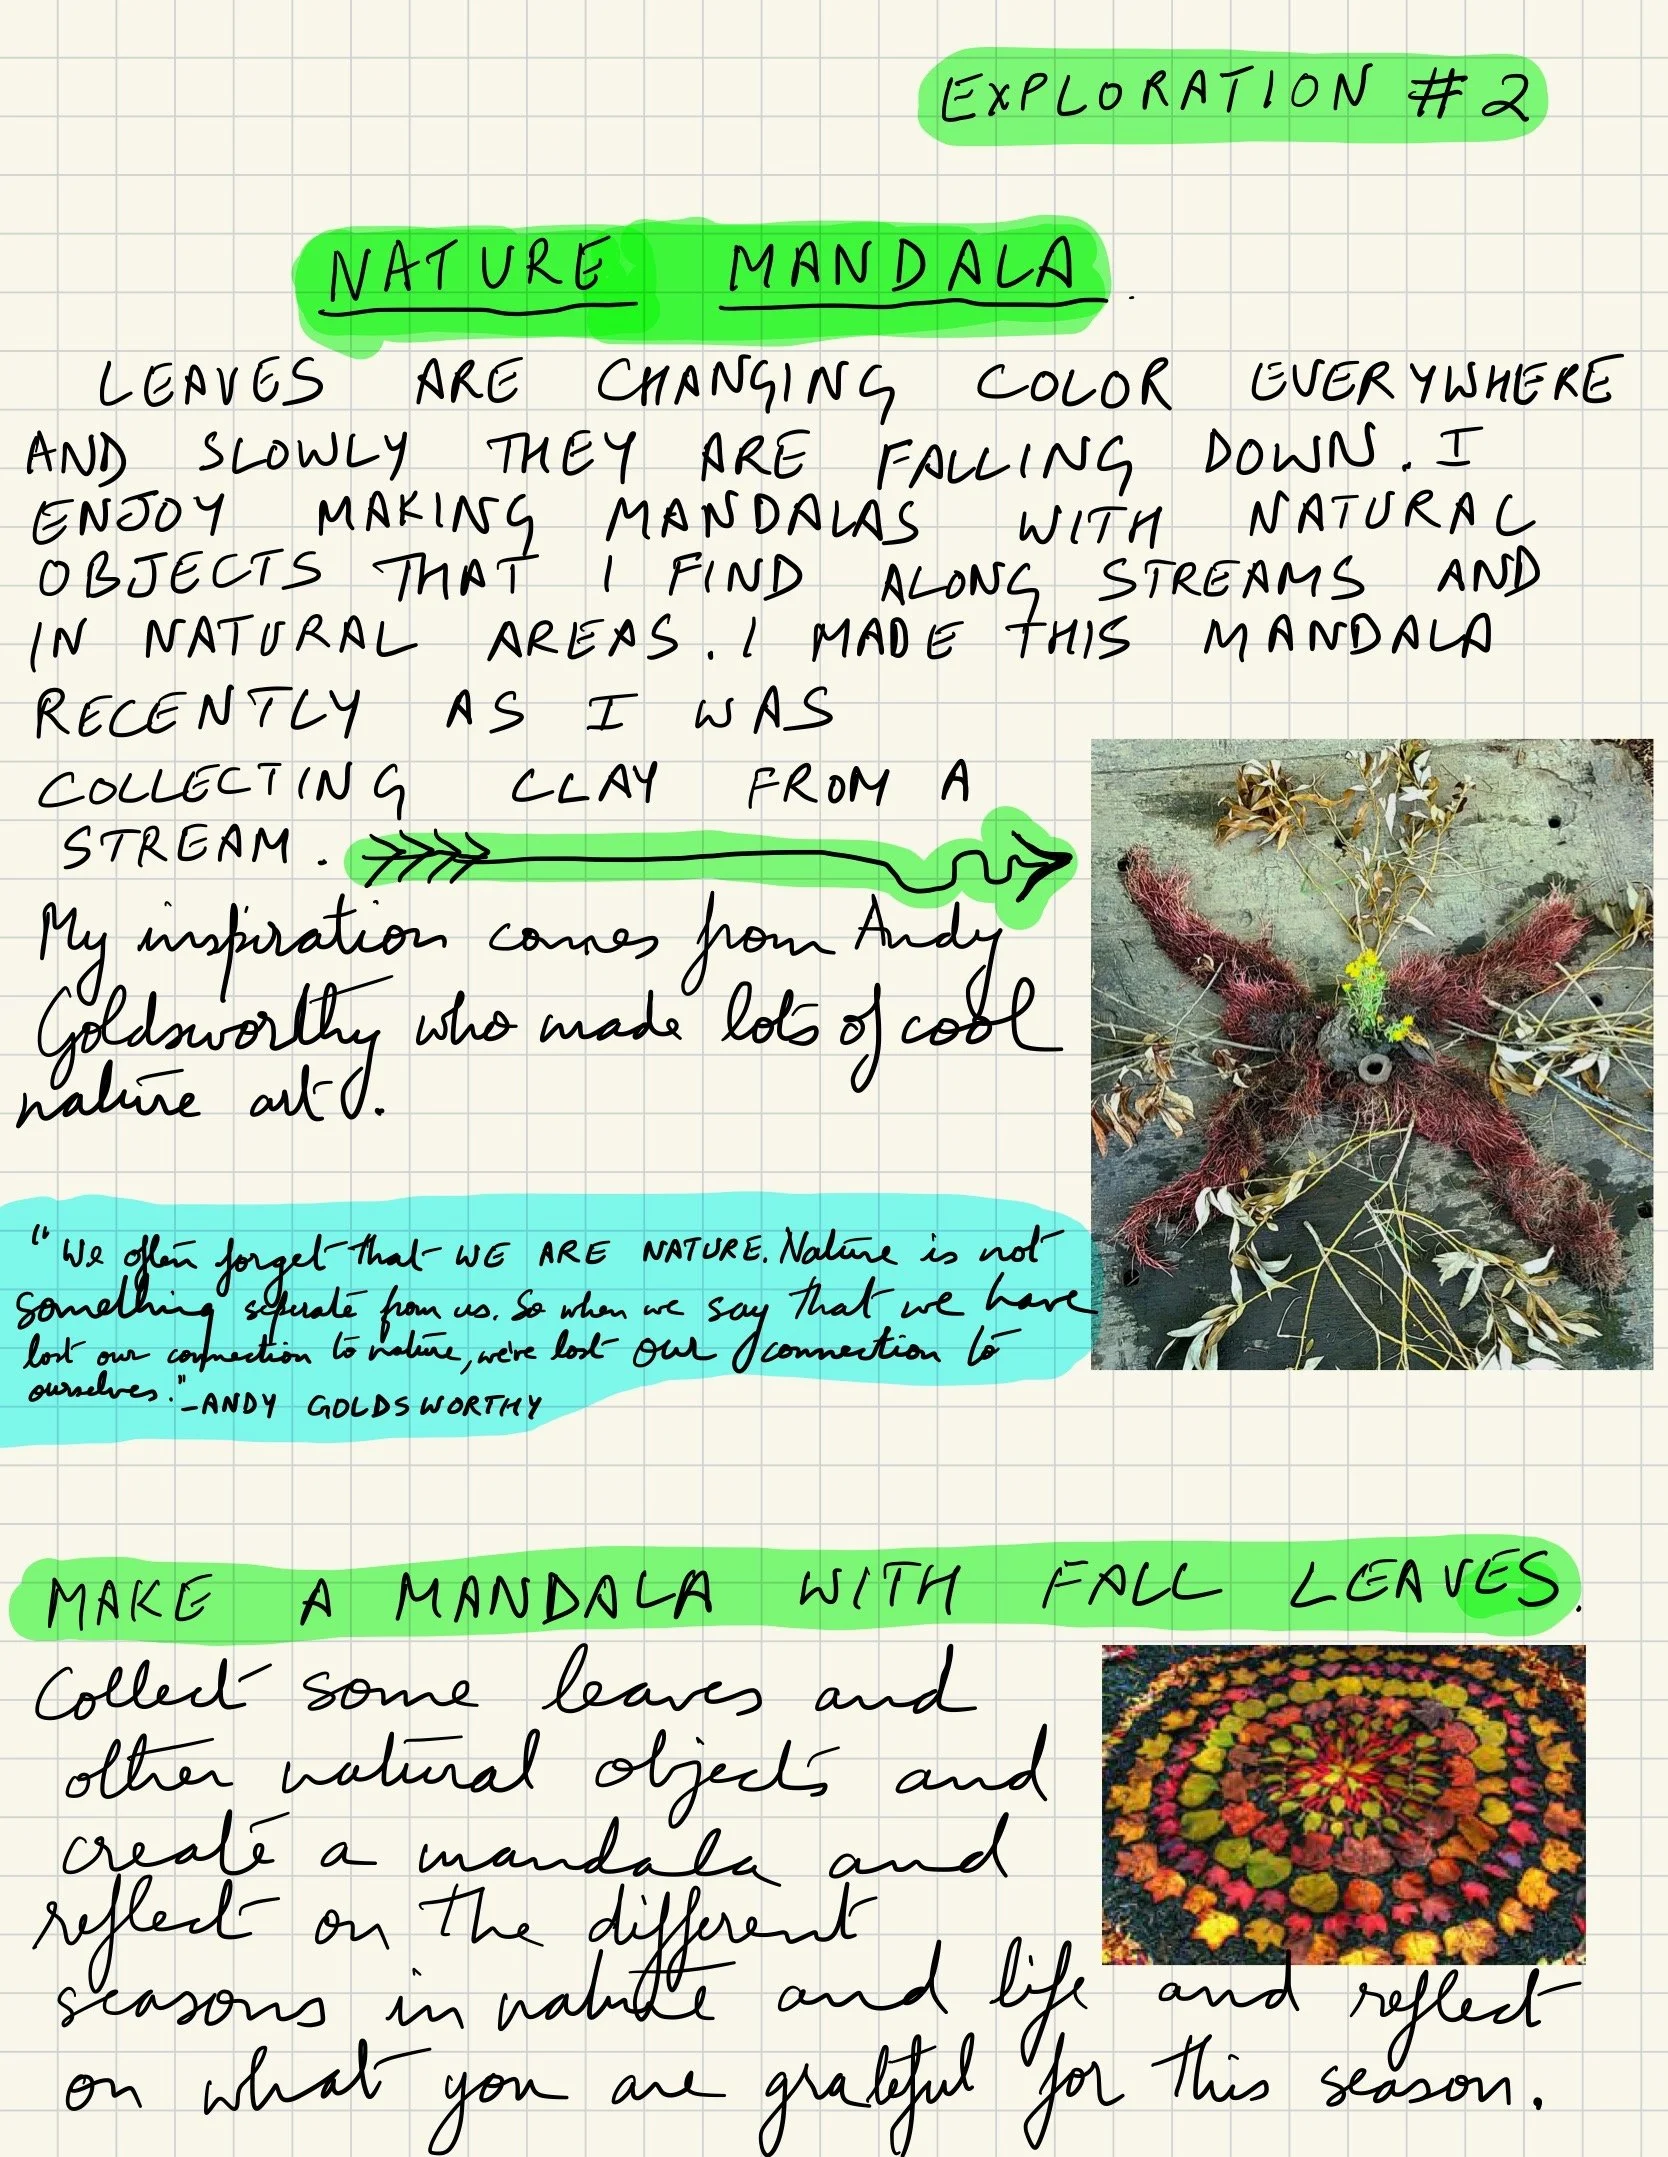 EXPLORATION #2
NATURE MANDALA.
LEAVES ARE CHANGING COLOR EVERYWHERE
AND SLOWLY THEY ARE FALLING DOWN. I
ENJOY MAKING MANDALAS WITH NATURAL
OBJECTS THAT I FIND ALONG STREAMS AND
IN NATURAL AREAS. I MADE THIS MANDALA
RECENTLY AS I WAS
COLLECTING CLAY FROM A
STREAM.
My inspiration comes from Andy
Goldsworthy who made lots of cool
nature art.
"We often forget that WE ARE NATURE. Nature is not
something seperate from us. So when we say that we have
lost our connection to nature, we've lost our connection to
ourselves." -ANDY GOLDSWORTHY
MAKE A MANDALA WITH FALL LEAVES.
Collect some leaves and
other natural objects and
create a mandala and
reflect on the different
seasons in nature and life and reflect
on what you are grateful for this season.